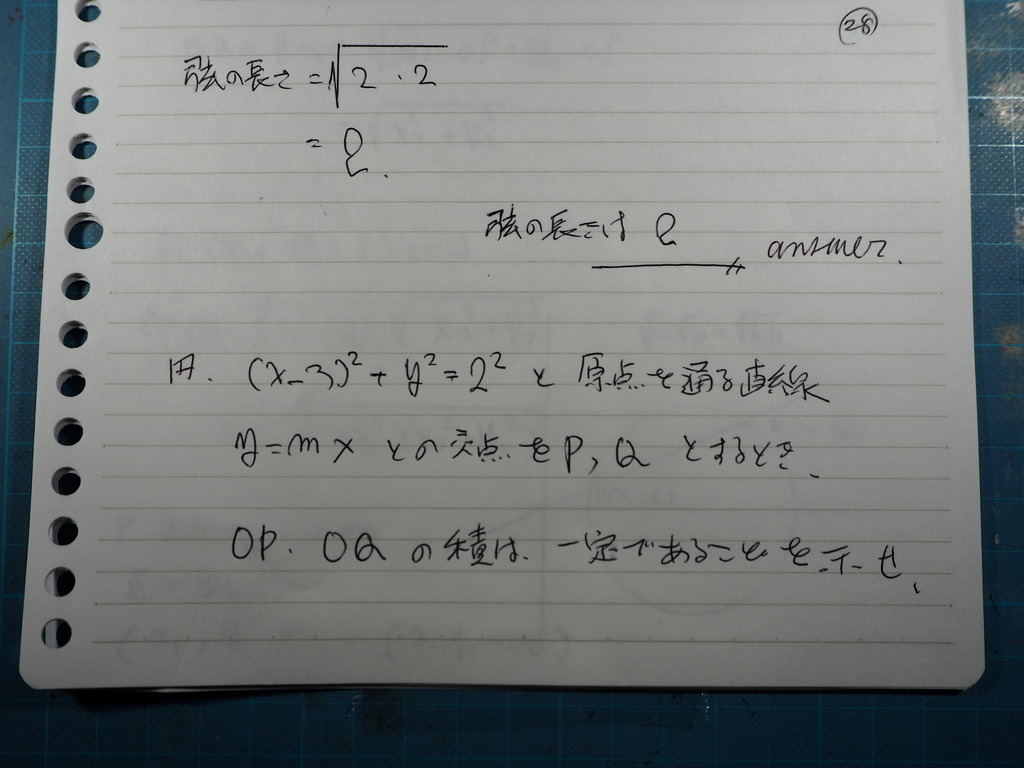 28
弦の長さ = √2・2
= 2.
弦の長さは 2 answer.
円. (x-3)² + y² = 2² と 原点を通る直線
y = mx との交点を P, Q とするとき、
OP. OQ の積は、一定であることを示せ、